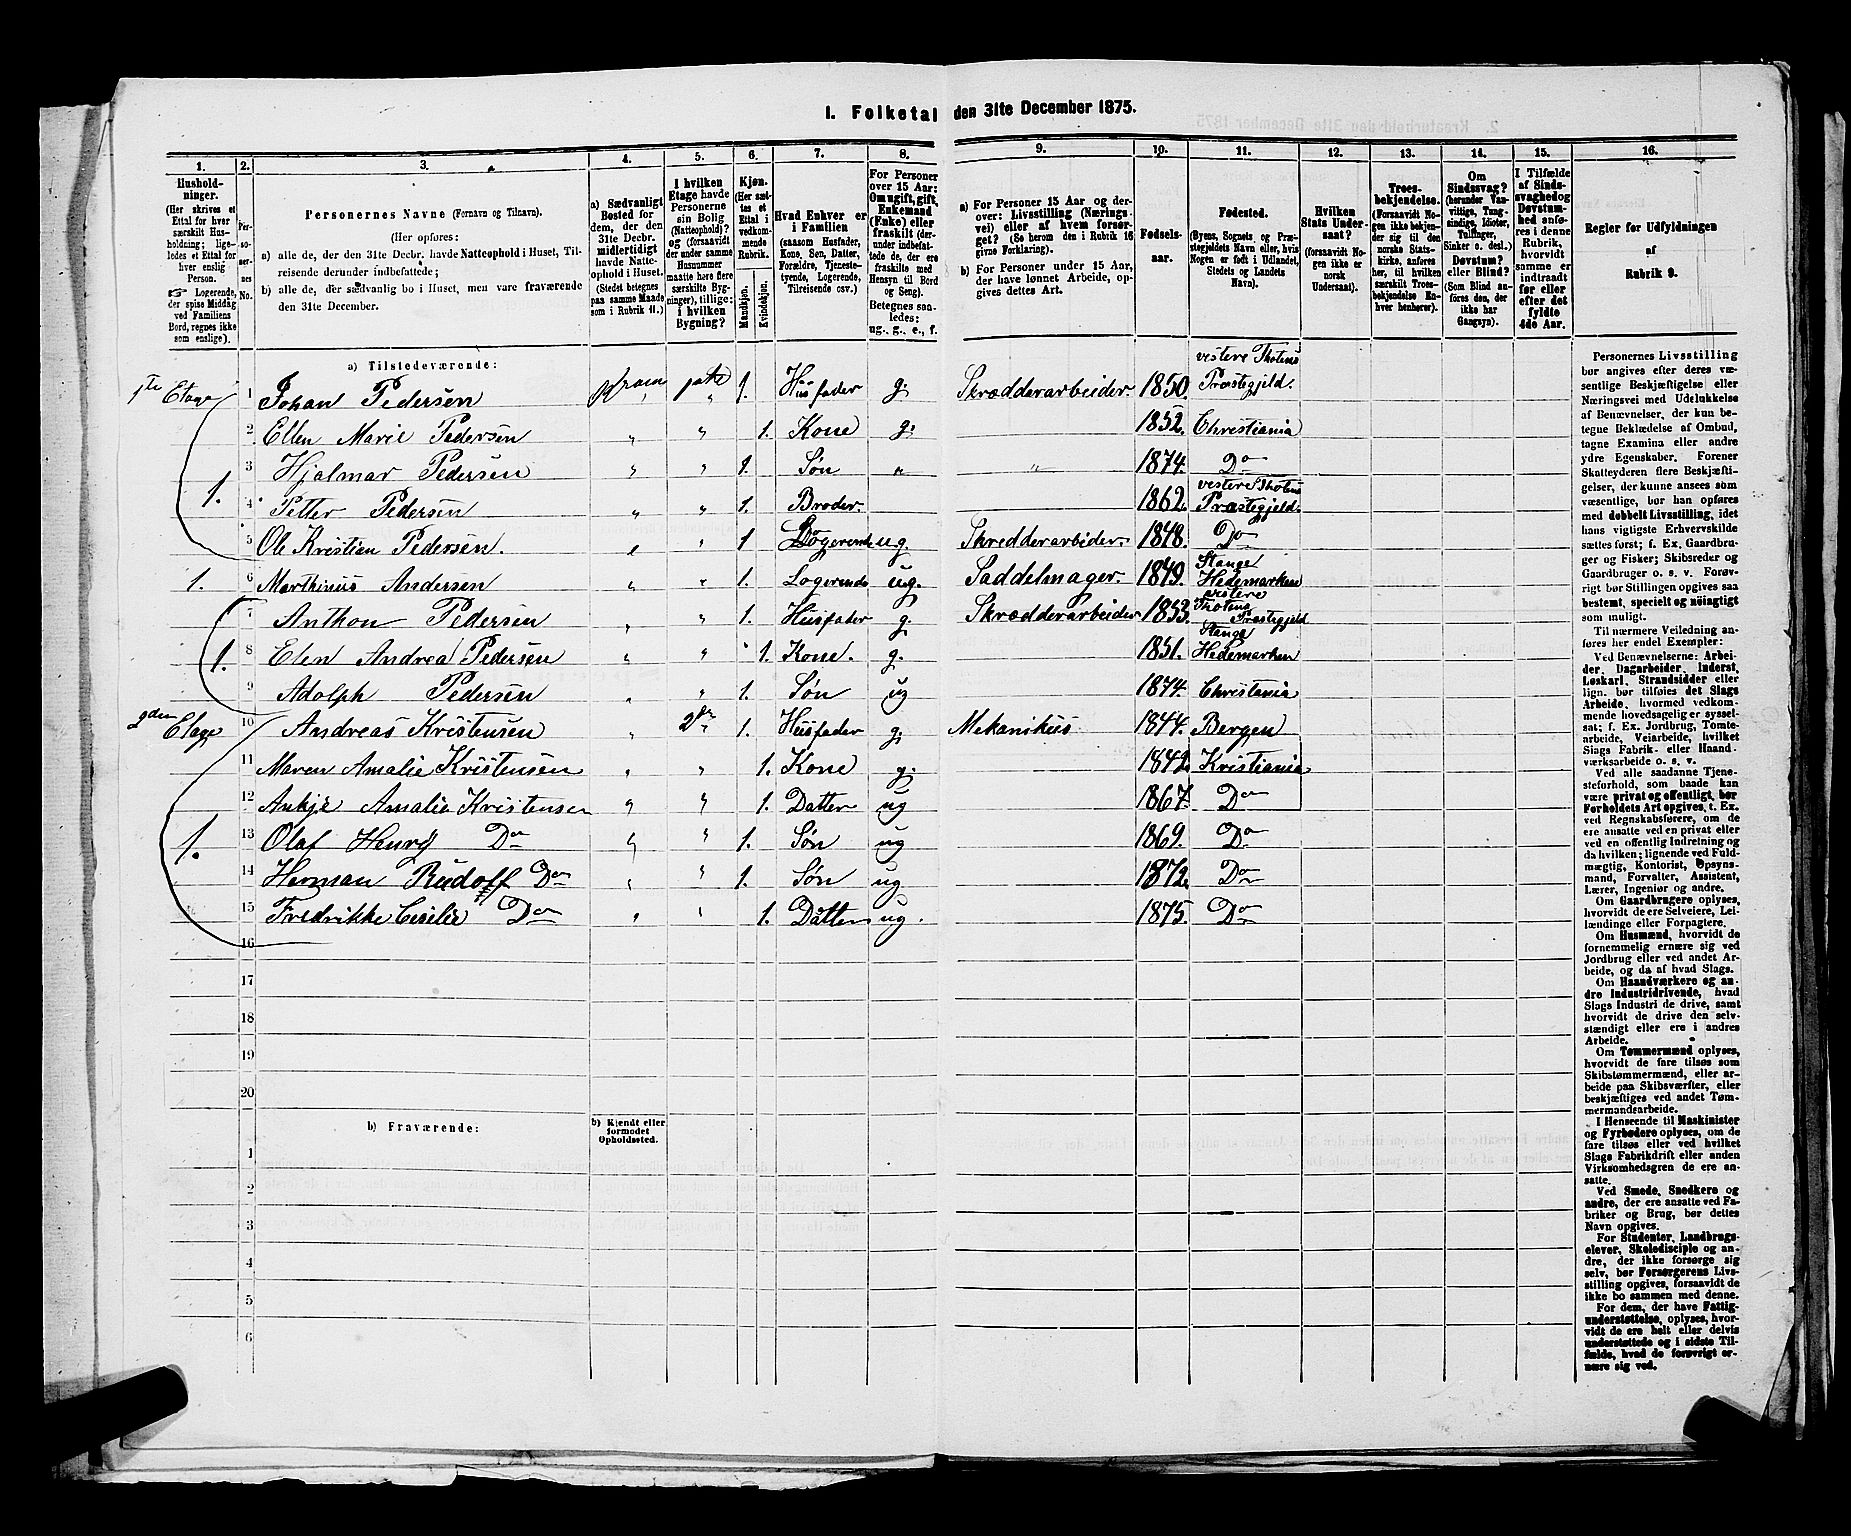 1. Folketal den 31te December 1875.
1. 2. 3. 4. 5. 6. 7. 8. 9. 10. 11. 12. 13. 14. 15. 16.
Husholdninger. (Her skrives et Ettal for hver særskilt Husholdning; ligeledes et Ettal for hver enslig Person. Logerende, der spise Middag ved Familiens Bord, regnes ikke som enslige).
Personernes No.
Personernes Navne (Fornavn og Tilnavn).
(Her opføres:
a) alle de, der den 31te Decbr. havde Natteophold i Huset, Tilreisende derunder indbefattede;
b) alle de, der sædvanlig bo i Huset, men vare fraværende den 31te December.
a) Sædvanligt Bosted for dem, der den 31te Decbr. midlertidigt havde Natteophold i Huset. (Stedet betegnes paa samme Maade som i Rubrik 11.)
I hvilken Etage havde Personerne sin Bolig (Natteophold)? og (forsaavidt der under samme Husnummer maatte høre flere særskilte Bygninger), tillige: i hvilken Bygning?
Kjøn. (Her sættes et Ettal i vedkommende Rubrik. Mandkjøn. Kvindekjøn.
Hvad Enhver er i Familien (saasom Husfader, Kone, Søn, Datter, Forældre, Tjenestetyende, Logerende, Tilreisende osv.)
For Personer over 15 Aar: Om ugift, gift, Enkemand (Enke) eller fraskilt (derunder indbefattede de, der ere fraskilte med Hensyn til Bord og Seng). Betegnes saaledes: ug., g., e., f.
a) For Personer 15 Aar og derover: Livsstilling (Næringsvei) eller af hvem forsørget? (Se herom den i Rubrik 16 givne Forklaring).
b) For Personer under 15 Aar, der have lønnet Arbeide, opgives dettes Art.
Fødselsaar.
Fødested. (Byens, Sognets og Præstegjeldets Navn eller, hvis Nogen er født i Udlandet, Stedets og Landets Navn).
Hvilken Stats Undersaat? (forsaavidt Nogen ikke er norsk Undersaat).
Troesbekjendelse. (Forsaavidt Nogen ikke bekjender sig til den norske Statskirke, anføres her, til hvilken særskilt Troesbekjendelse Enhver henhører).
Om Sindssvag? (herunder Vanvittige, Tungsindige, Idioter, Tullinger, Sinker o. desl.) Døvstum? eller Blind? (Som Blind anføres den, der ikke har Gangsyn).
I Tilfælde af Sindssvaghed og Døvstumhed anføres i denne Rubrik, hvorvidt samme er indtraadt før eller efter det fyldte 4de Aar.
Regler for Udfyldningen af Rubrik 9.
a) Tilstedeværende:
1ste Etage 1 Johan Pedersen 1. Husfader g. Skrædderarbeider. 1850. vestere Thotens Præstegjeld.
2 Ellen Marie Pedersen „ „ 1. Kone g. 1852. Christiania
3 Hjalmar Pedersen „ „ 1. Søn „ „ 1874. Do
1. 4 Petter Pedersen „ „ 1. Broder. 1862. vestere Thotens Præstegjeld.
5 Ole Kristian Pedersen. „ „ 1 Logerende ug. Skredderarbider. 1848. Do
1. 6 Marthinus Andersen „ „ 1. Logerende ug. Saddelmager. 1849. Stange Hedemarken
7 Anthon Pedersen „ „ 1. Husfader g. Skrædderarbeider 1853. vestere Thotens Præstegjeld
1. 8 Elen Andrea Pedersen „ „ 1. Kone. g. 1851. Stange Hedemarken
9 Adolph Pedersen „ „ 1. Søn ug 1874. Christania
2den Etage 10 Andreas Kristensen „ 2den 1. Husfader g. Mekanikus 1844. Bergen
11 Maren Amalie Kristensen „ „ 1. Kone g. 1842 Kristiania
12 Amalia Kristensen „ „ 1. Datter ug 1867. Do
1. 13 Olaf Henry Do „ „ 1. Søn ug 1869. Do
14 Herman Rudolf Do „ „ 1. Søn ug 1872. Do
15 Fredrikke Cesilie Do „ „ 1. Datter ug. 1875. Do
16
17
18
19
20
b) Fraværende:
b) Kjendt eller formodet Opholdssted.
1
2
3
4
5
6
Personernes Livsstilling
bør angives efter deres væ-
sentlige Beskjæftigelse eller
Næringsvei med Udelukkelse
af Benævnelser, der kun be-
tegne Beklædelse af Ombud,
tagne Examina eller andre
ydre Egenskaber. Forener
Skatteyderen flere Beskjæfti-
gelser, der kunne ansees som
væsentlige, bør han opføres
med dobbelt Livsstilling, idet
hans vigtigste Erhvervskilde
sættes først; f. Ex. Gaardbru-
ger og Fisker; Skibsreder og
Gaardbruger o. s. v. Forøv-
rigt bør Stillingen opgives saa
bestemt, specielt og nøiagtigt
som muligt.
Til nærmere Veiledning an-
føres her endel Exempler:
Ved Benævnelserne: Arbei-
der, Dagarbeider, Inderst,
Løskarl, Strandsidder eller
lign. bør tilføies det Slags
Arbeide, hvormed vedkom-
mende hovedsagelig er syssel-
sat; f. Ex. Jordbrug, Tomte-
arbeide, Veiarbeide, hvilket
Slags Fabrik- eller Haand-
værksarbeide o. s. v.
Ved alle saadanne Tjene-
steforhold, som baade kan
være privat og offentligt, bør
Forholdets Art opgives, t. Ex.
ved Regnskabsførere, om de
ere ansatte ved en privat eller
ved en offentlig Indretning og
da hvilken; lignende ved Fuld-
mægtig, Kontorist, Opsyns-
mand, Forvalter, Assistent,
Lærer, Ingeniør og andre.
Om Gaardbrugere oplyses,
hvorvidt de ere Selveiere, Lei-
lændinge eller Forpagtere.
Om Husmænd, hvorvidt de
fornemmelig ernære sig ved
Jordbrug eller ved andet Ar-
beide, og da af hvad Slags.
Om Haandværkere og an-
dre Industridrivende, hvad
Slags Industri de drive, samt
hvorvidt de drive den selv-
stændigt eller ere i andres
Arbeide.
Om Tømmermænd oplyses,
hvorvidt de fare tilsøs som
Skibstømmermænd, eller ar-
beide paa Skibsværfter, eller
beskjæftiges ved andet Tøm-
mermandsarbeide.
I Henseende til Maskinister
og Fyrbødere oplyses, om de
fare tilsøs eller ved hvilket
Slags Fabrikdrift eller anden
Virksomhedsgren de ere an-
satte.
Ved Smede, Snedkere og
andre, der ere ansatte ved Fa-
briker og Brug, bør dettes
Navn opgives.
For Studenter, Landbrugs-
elever, Skoledisciple og an-
dre, der ikke forsørge sig
selv, bør Forsørgerens Livs-
stilling opgives, forsaavidt de
ikke bo sammen med denne.
For dem, der have Fattig-
understøttelse, oplyses, hvor-
vidt de ere helt eller delvis
understøttede og i sidste Til-
fælde, hvad de forøvrigt er-
nære sig ved.